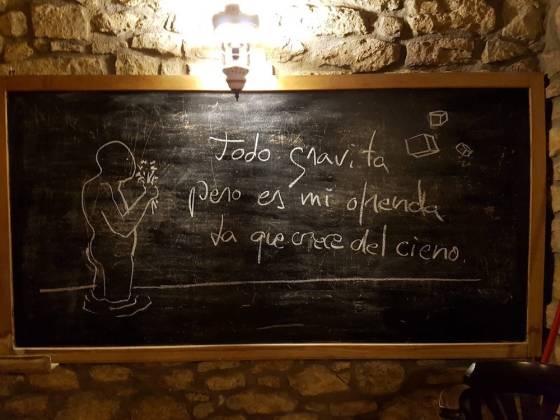 Todo gravita
pero es mi ofrenda
la que crece del cieno.